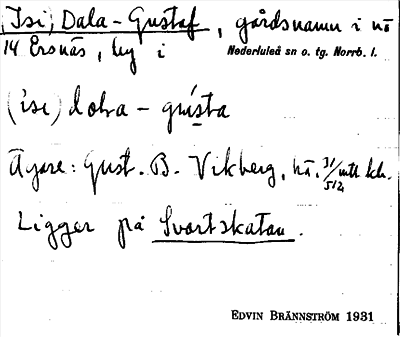 (Isi) Dala-Gustaf, gårdsnamn i nå
14 Ersnäs, by i Nederluleå sn o. tg. Norrb. l.
Ägare: Gust. B. Vikberg, nå.
Ligger på Svartskatan.
EDVIN BRÄNNSTRÖM 1931